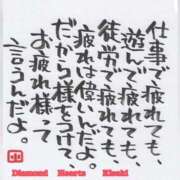 仕事で疲れても、
遊んで疲れても、
徒労で疲れても、
疲れは偉いんだよ。
だから様をつけて、
お疲れ様って
言うんだよ。
Diamond Hearts Kisuki